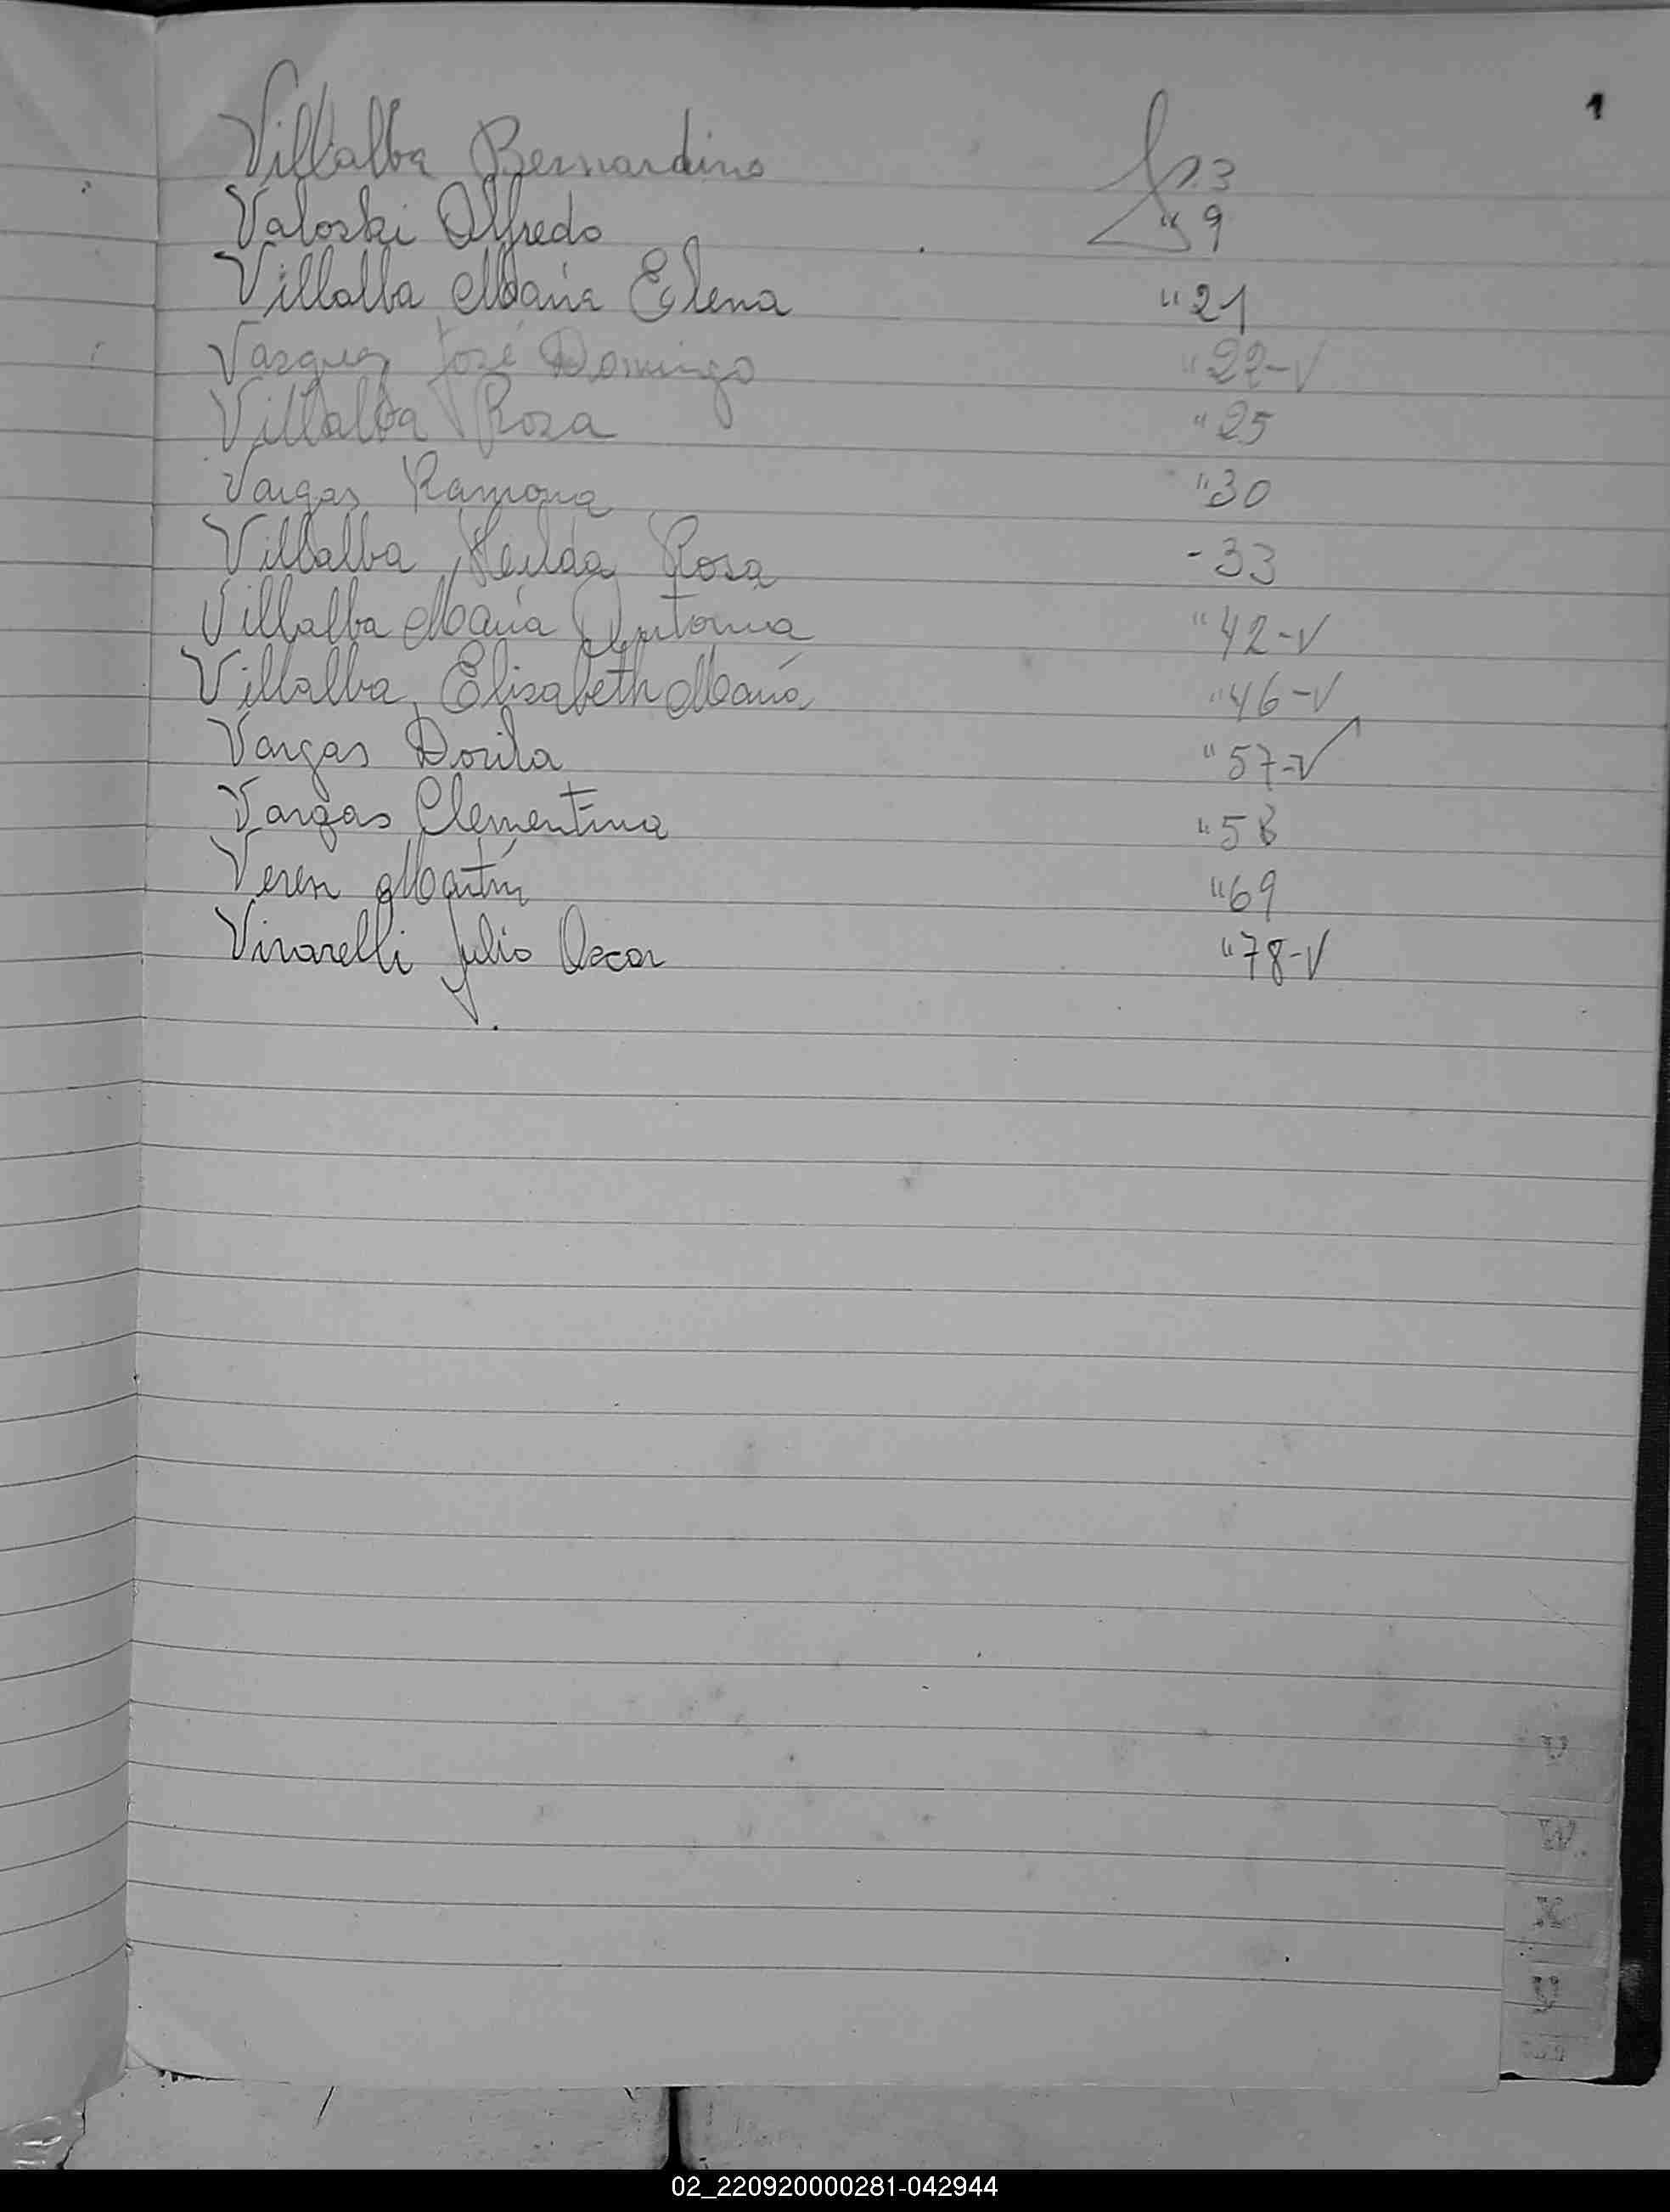 1
Villalba Bernardino fs. 3
Valoski Alfredo " 9
Villalba María Elena " 21
Vazquez José Domingo " 22-V
Villalba Rosa " 25
Vargas Ramona " 30
Villalba Hilda Rosa - 33
Villalba María Antonia " 42-V
Villalba Elisabeth María " 46-V
Vargas Dorila " 57-V
Vargas Clementina " 58
Veren Martín " 69
Vivarelli Julio Oscar " 78-V
V
W
X
02_220920000281-042944